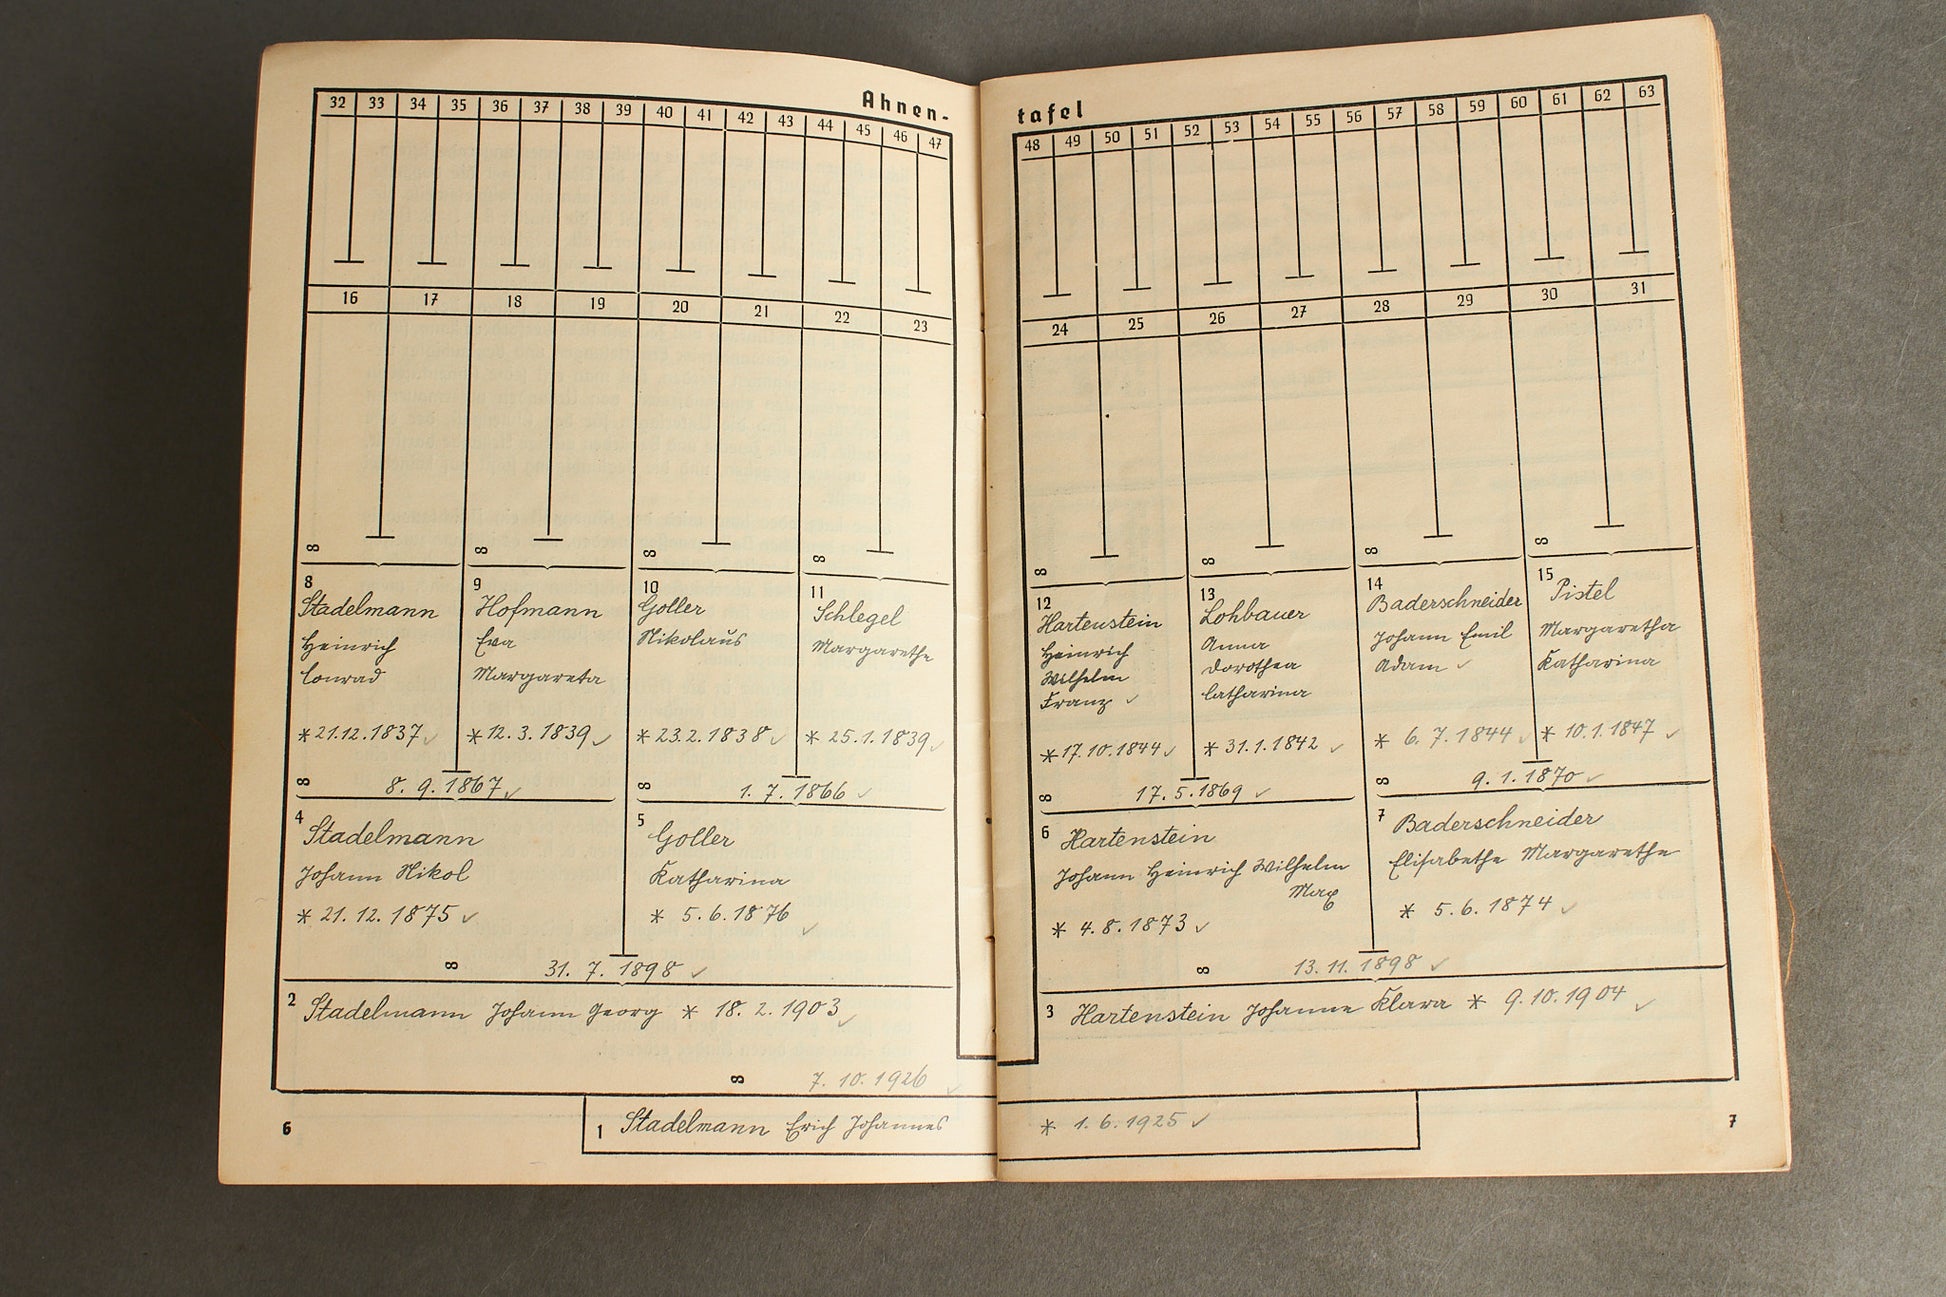 Ahnen-
32 33 34 35 36 37 38 39 40 41 42 43 44 45 46 47
16 17 18 19 20 21 22 23
∞ ∞ ∞ ∞
8
Stadelmann
Heinrich
Conrad
* 21.12.1837 ✓
9
Hofmann
Eva
Margareta
* 12.3.1839 ✓
∞ 8. 9. 1867 ✓
10
Goller
Nikolaus
* 23.2.1838 ✓
11
Schlegel
Margarethe
* 25.1.1839 ✓
∞ 1. 7. 1866 ✓
4
Stadelmann
Johann Nikol
* 21. 12. 1875 ✓
5
Goller
Katharina
* 5.6.1876 ✓
∞ 31. 7. 1898 ✓
2 Stadelmann Johann Georg * 18. 2. 1903 ✓
∞ 7. 10. 1926 ✓
6
tafel
48 49 50 51 52 53 54 55 56 57 58 59 60 61 62 63
24 25 26 27 28 29 30 31
∞ ∞ ∞ ∞
12
Hartenstein
Heinrich
Wilhelm
Franz ✓
* 17.10.1844 ✓
13
Lohbauer
Anna
Dorothea
Catharina
* 31.1.1842 ✓
∞ 17. 5. 1869 ✓
14
Baderschneider
Johann Emil
Adam ✓
* 6. 7. 1844 ✓
15
Pistel
Margaretha
Katharina
* 10.1.1847 ✓
∞ 9. 1. 1870 ✓
6
Hartenstein
Johann Heinrich Wilhelm
Max
* 4.8.1873 ✓
7
Baderschneider
Elisabethe Margarethe
* 5.6.1874 ✓
∞ 13. 11. 1898 ✓
3 Hartenstein Johanne Klara * 9.10.1904 ✓
1 Stadelmann Erich Johannes * 1.6.1925 ✓
7